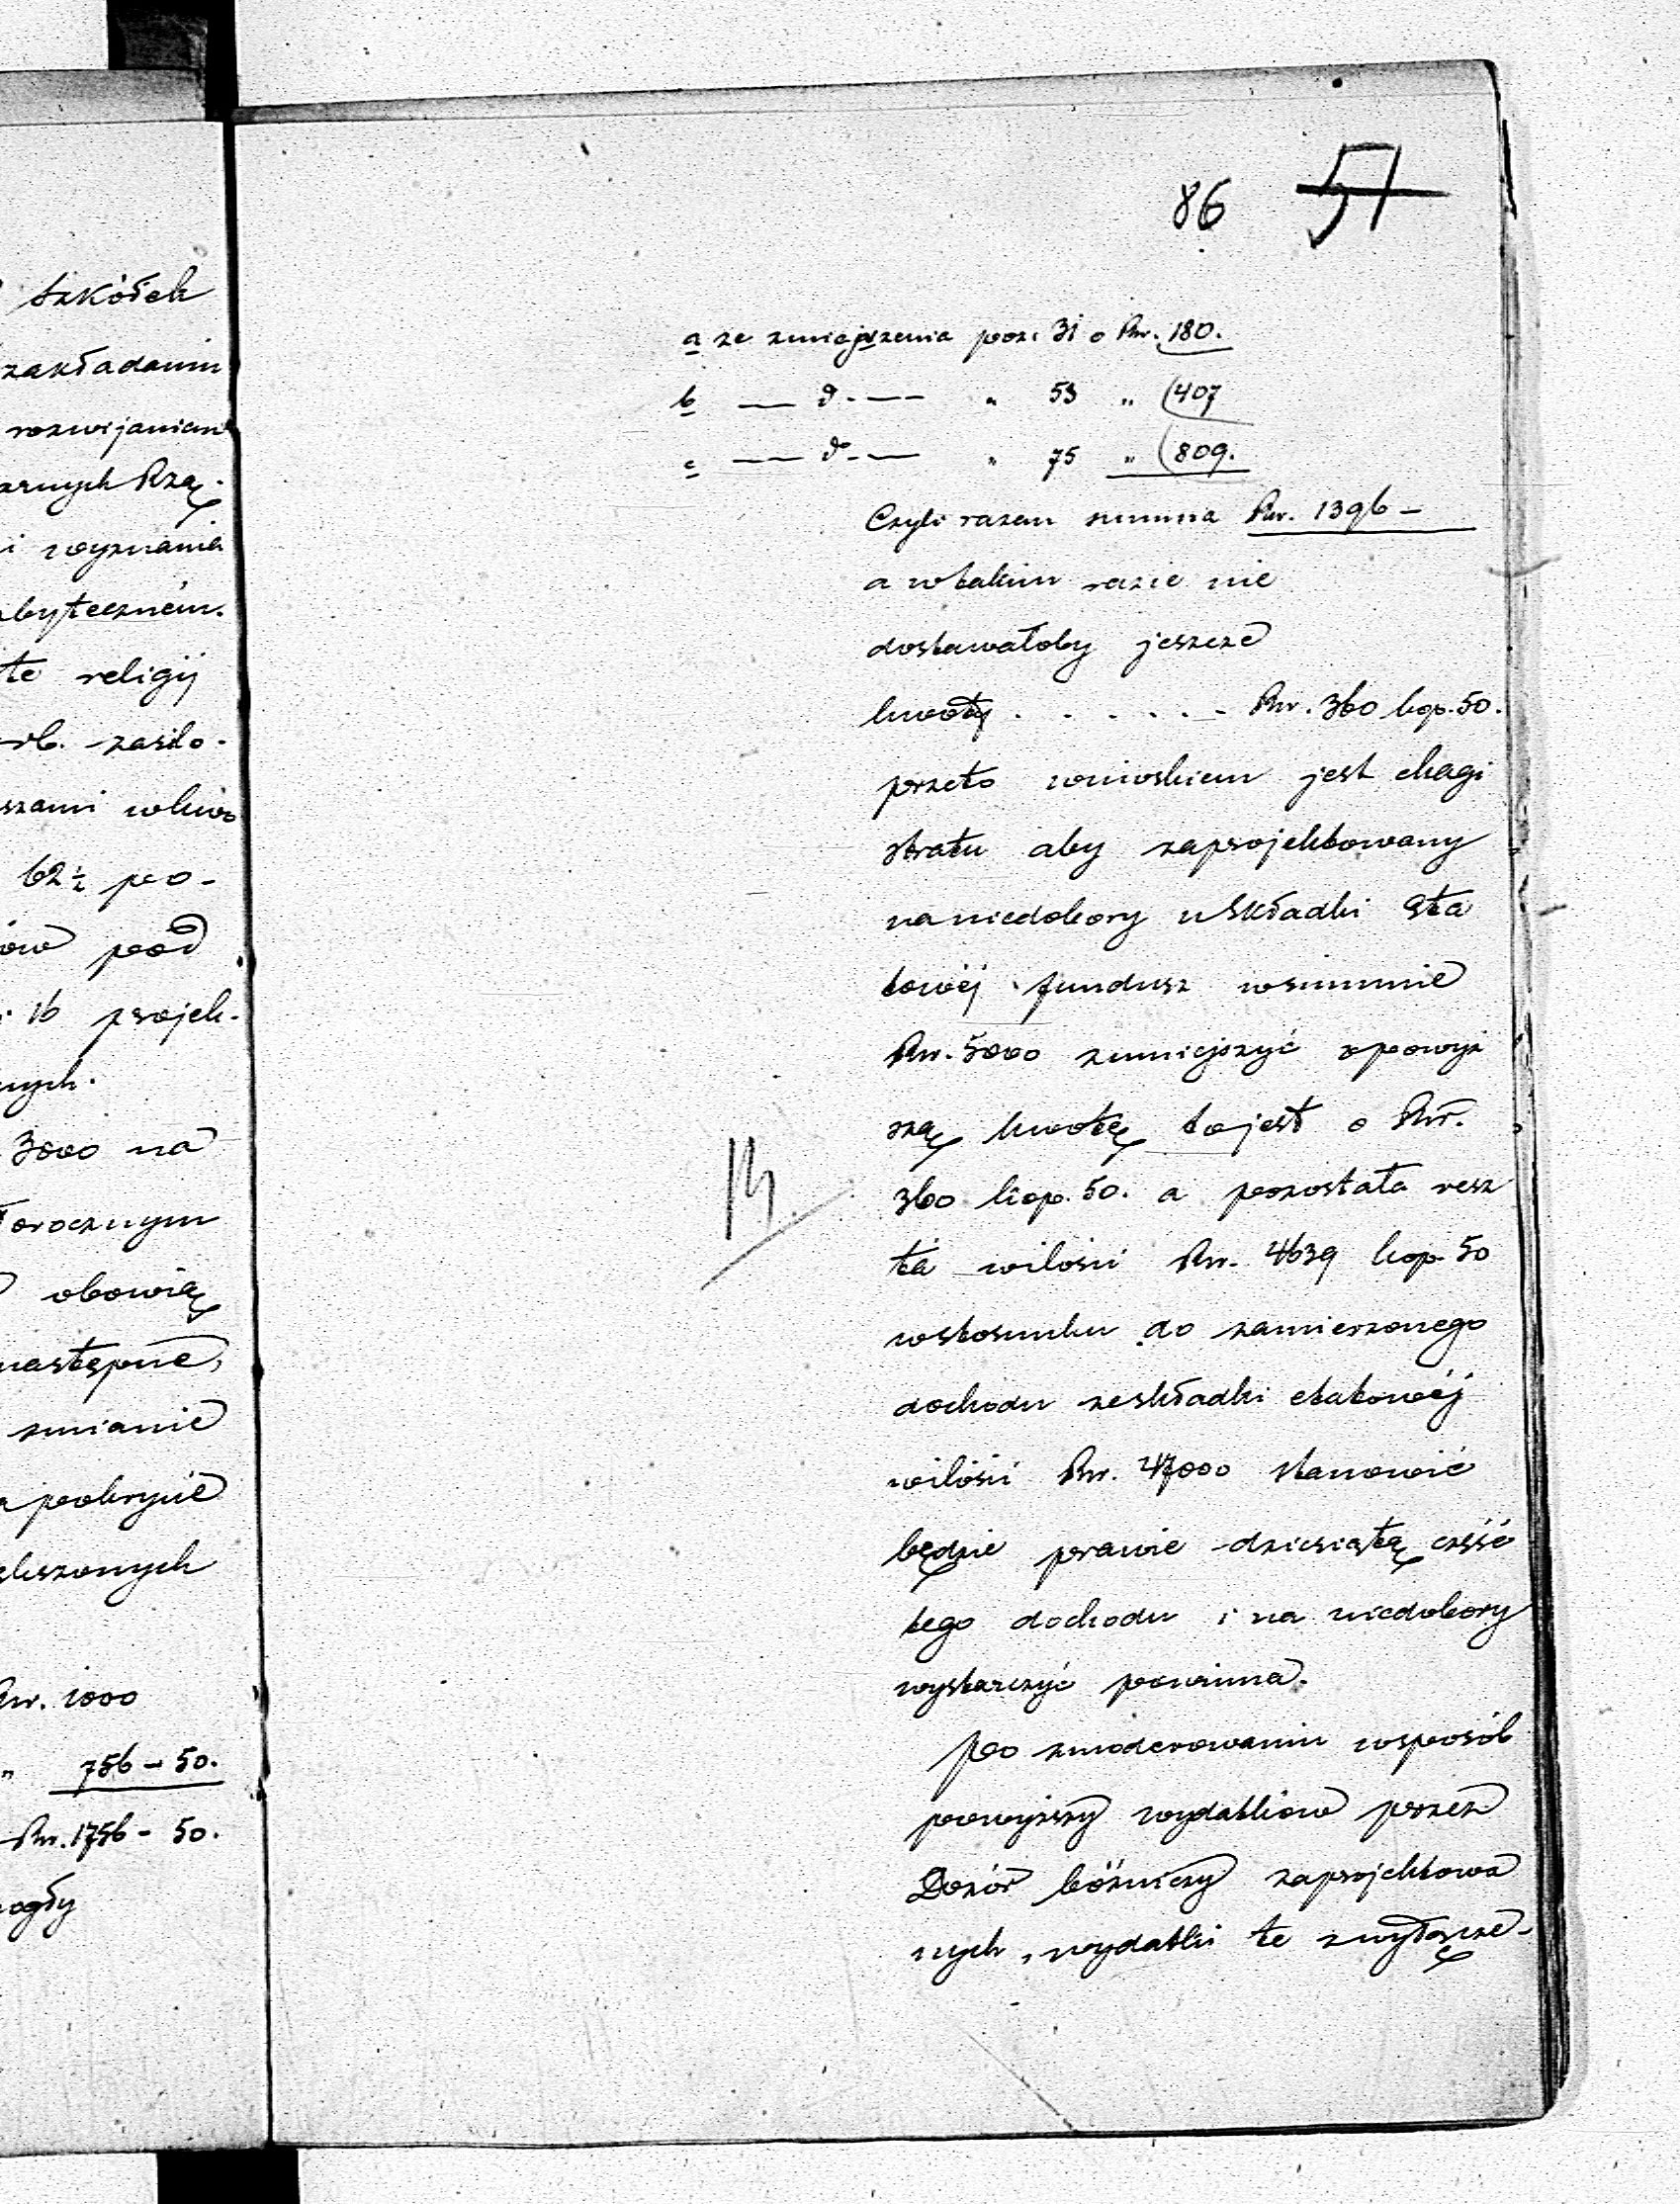 86 51
a ze zmniejszenia poz. 31 o Rsr. 180.
b — d. — „ 53 „ 407
c — d. — „ 75 „ 809.
Czyli razem summa Rsr. 1396 –
a wtakim razie nie
dostawałoby jeszcze
kwoty . . . . . . Rsr. 360 kop. 50.
przeto wnioskiem jest Magi
stratu aby zaprojektowany
na niedobory w Składki Eta
towéj fundusz wsummie
Rsr. 5000 zmniejszyć o powyż
szą kwotę to jest o Rsr.
360 kop. 50. a pozostała resz
ta wilości Rsr. 4639 kop. 50
wstosunku do zamierzonego
dochodu ze składki etatowéj
wilości Rsr. 47000 stanowić
będzie prawie dziesiątą część
tego dochodu i na niedobory
wystarczyć powinna.
Po zmoderowaniu wsposób
powyższy wydatków przez
Dozór bóżniczy zaprojektowa
nych, wydatki te z wyłącze-
szkółek
zakładaniu
rozwijaniem
Rzą-
i wyznania
te religij
rb. zasilo-
62½ po-
pod
16 projek-
3000 na
obowią
następne,
zmianie
pokrycie
Rsr. 1000
„ 756 – 50.
Rsr. 1756 – 50.